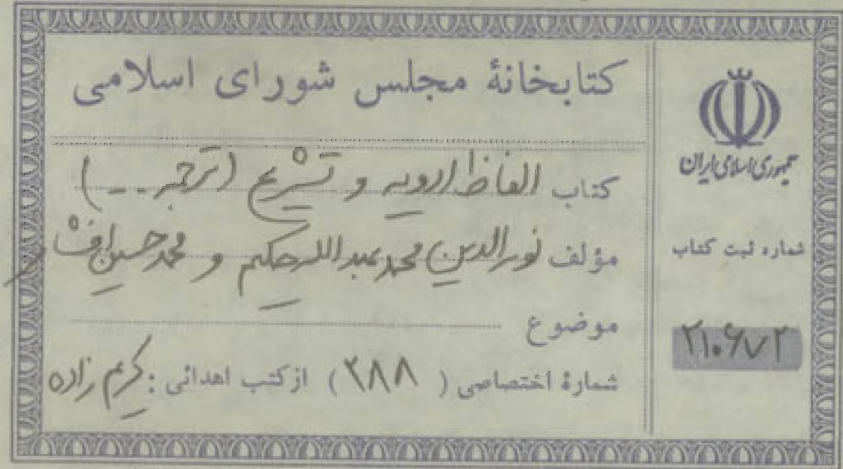 کتابخانهٔ مجلس شورای اسلامی
کتاب الفاظ ادویه و تشریح (ترجمه ...)
مؤلف نورالدین محمد عبدالله حکیم و محمد حسین افشار
موضوع
شمارهٔ اختصاصی (۳۸۸) از کتب اهدائی : کریم زاده
جمهوری اسلامی ایران
شماره ثبت کتاب
۲۱۰۶۷۲